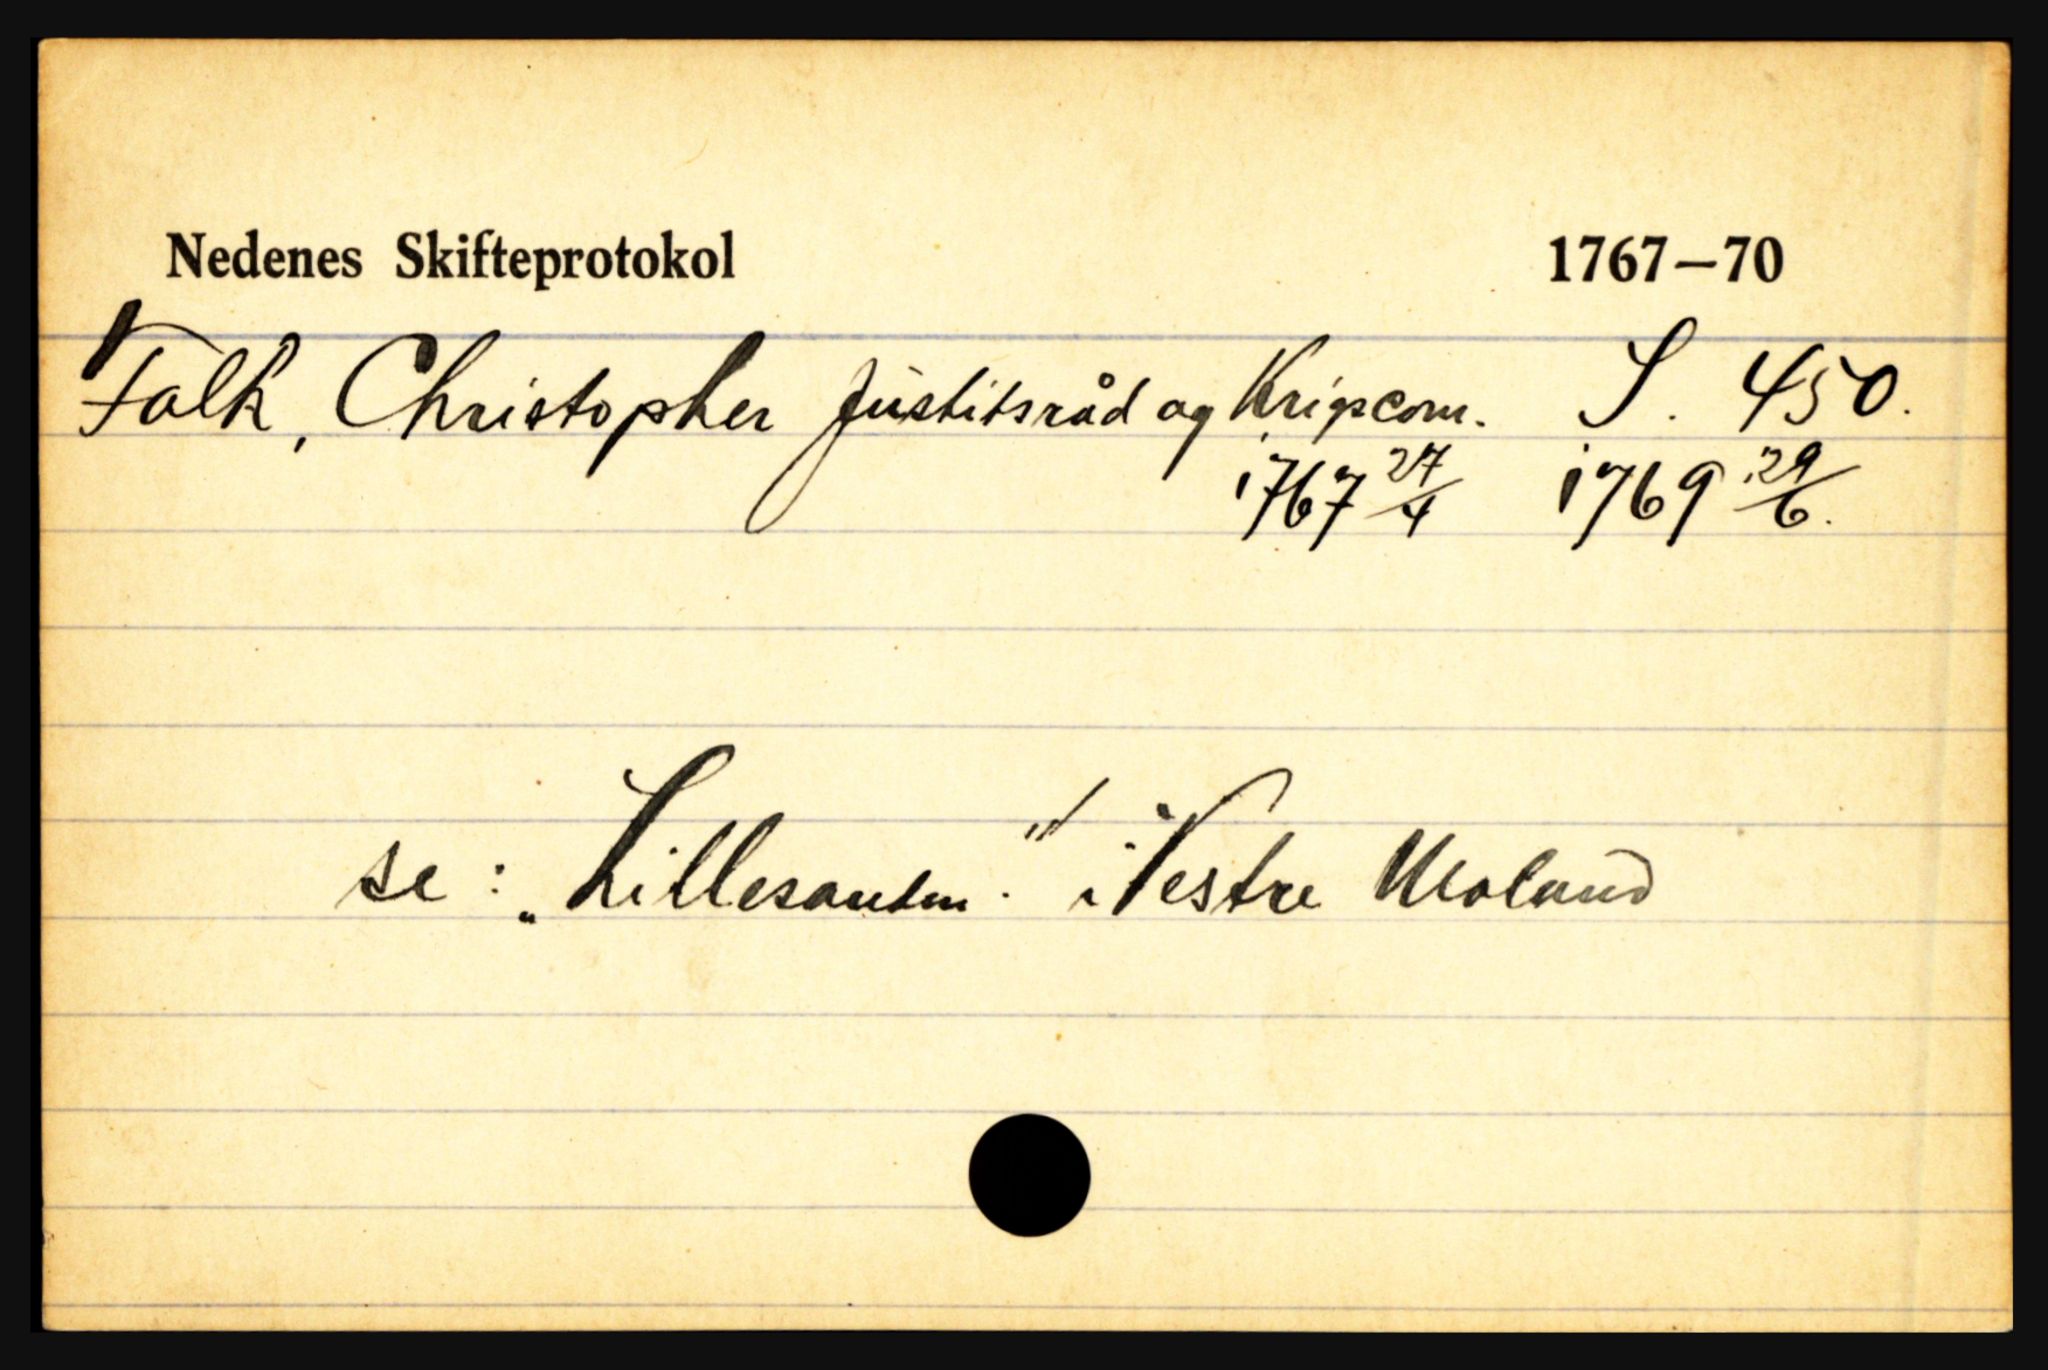 Nedenes Skifteprotokol 1767-70
Falk, Christopher Justitsråd og Krigscom. S. 450.
1767 27/4 1769 29/6.
se: „Lillesanden." i Vestre Moland